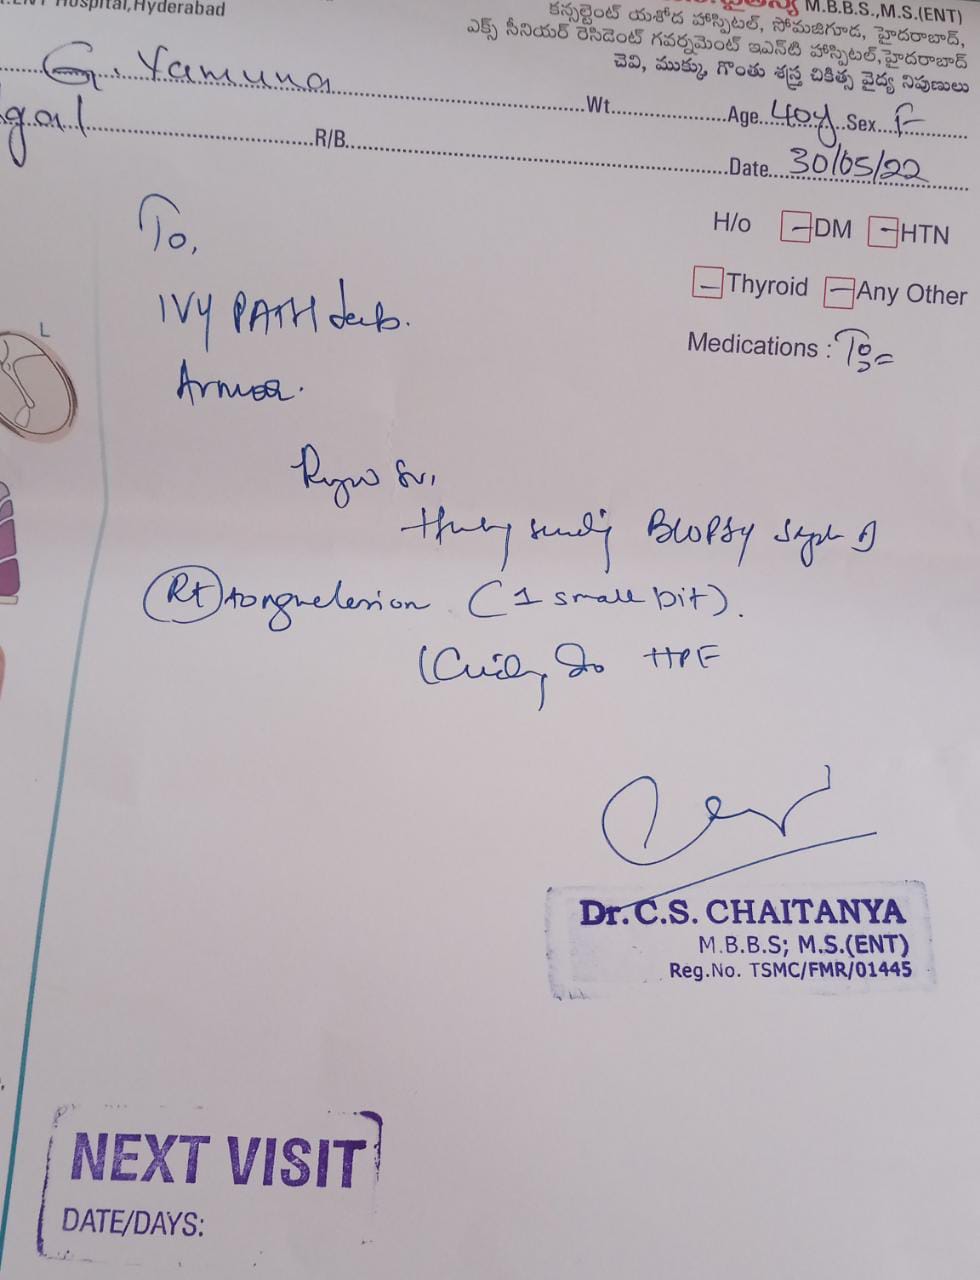 Hospital,Hyderabad
M.B.B.S.,M.S.(ENT)
కన్సల్టెంట్ యశోద హాస్పిటల్, సోమజిగూడ, హైదరాబాద్,
ఎక్స్ సీనియర్ రెసిడెంట్ గవర్నమెంట్ ఇఎన్‌టి హాస్పిటల్,హైదరాబాద్
చెవి, ముక్కు, గొంతు శస్త్ర చికిత్స వైద్య నిపుణులు
G. Yamuna Wt. Age 40y Sex F
gal R/B. Date 30/05/22
To,
H/o DM HTN
Thyroid Any Other
Medications :
IVY PATH Lab.
Armoor.
L
BIOPSY
Rt tongue lesion (1 small bit).
Kindly Do HPE
Dr.C.S. CHAITANYA
M.B.B.S; M.S.(ENT)
Reg.No. TSMC/FMR/01445
NEXT VISIT
DATE/DAYS: